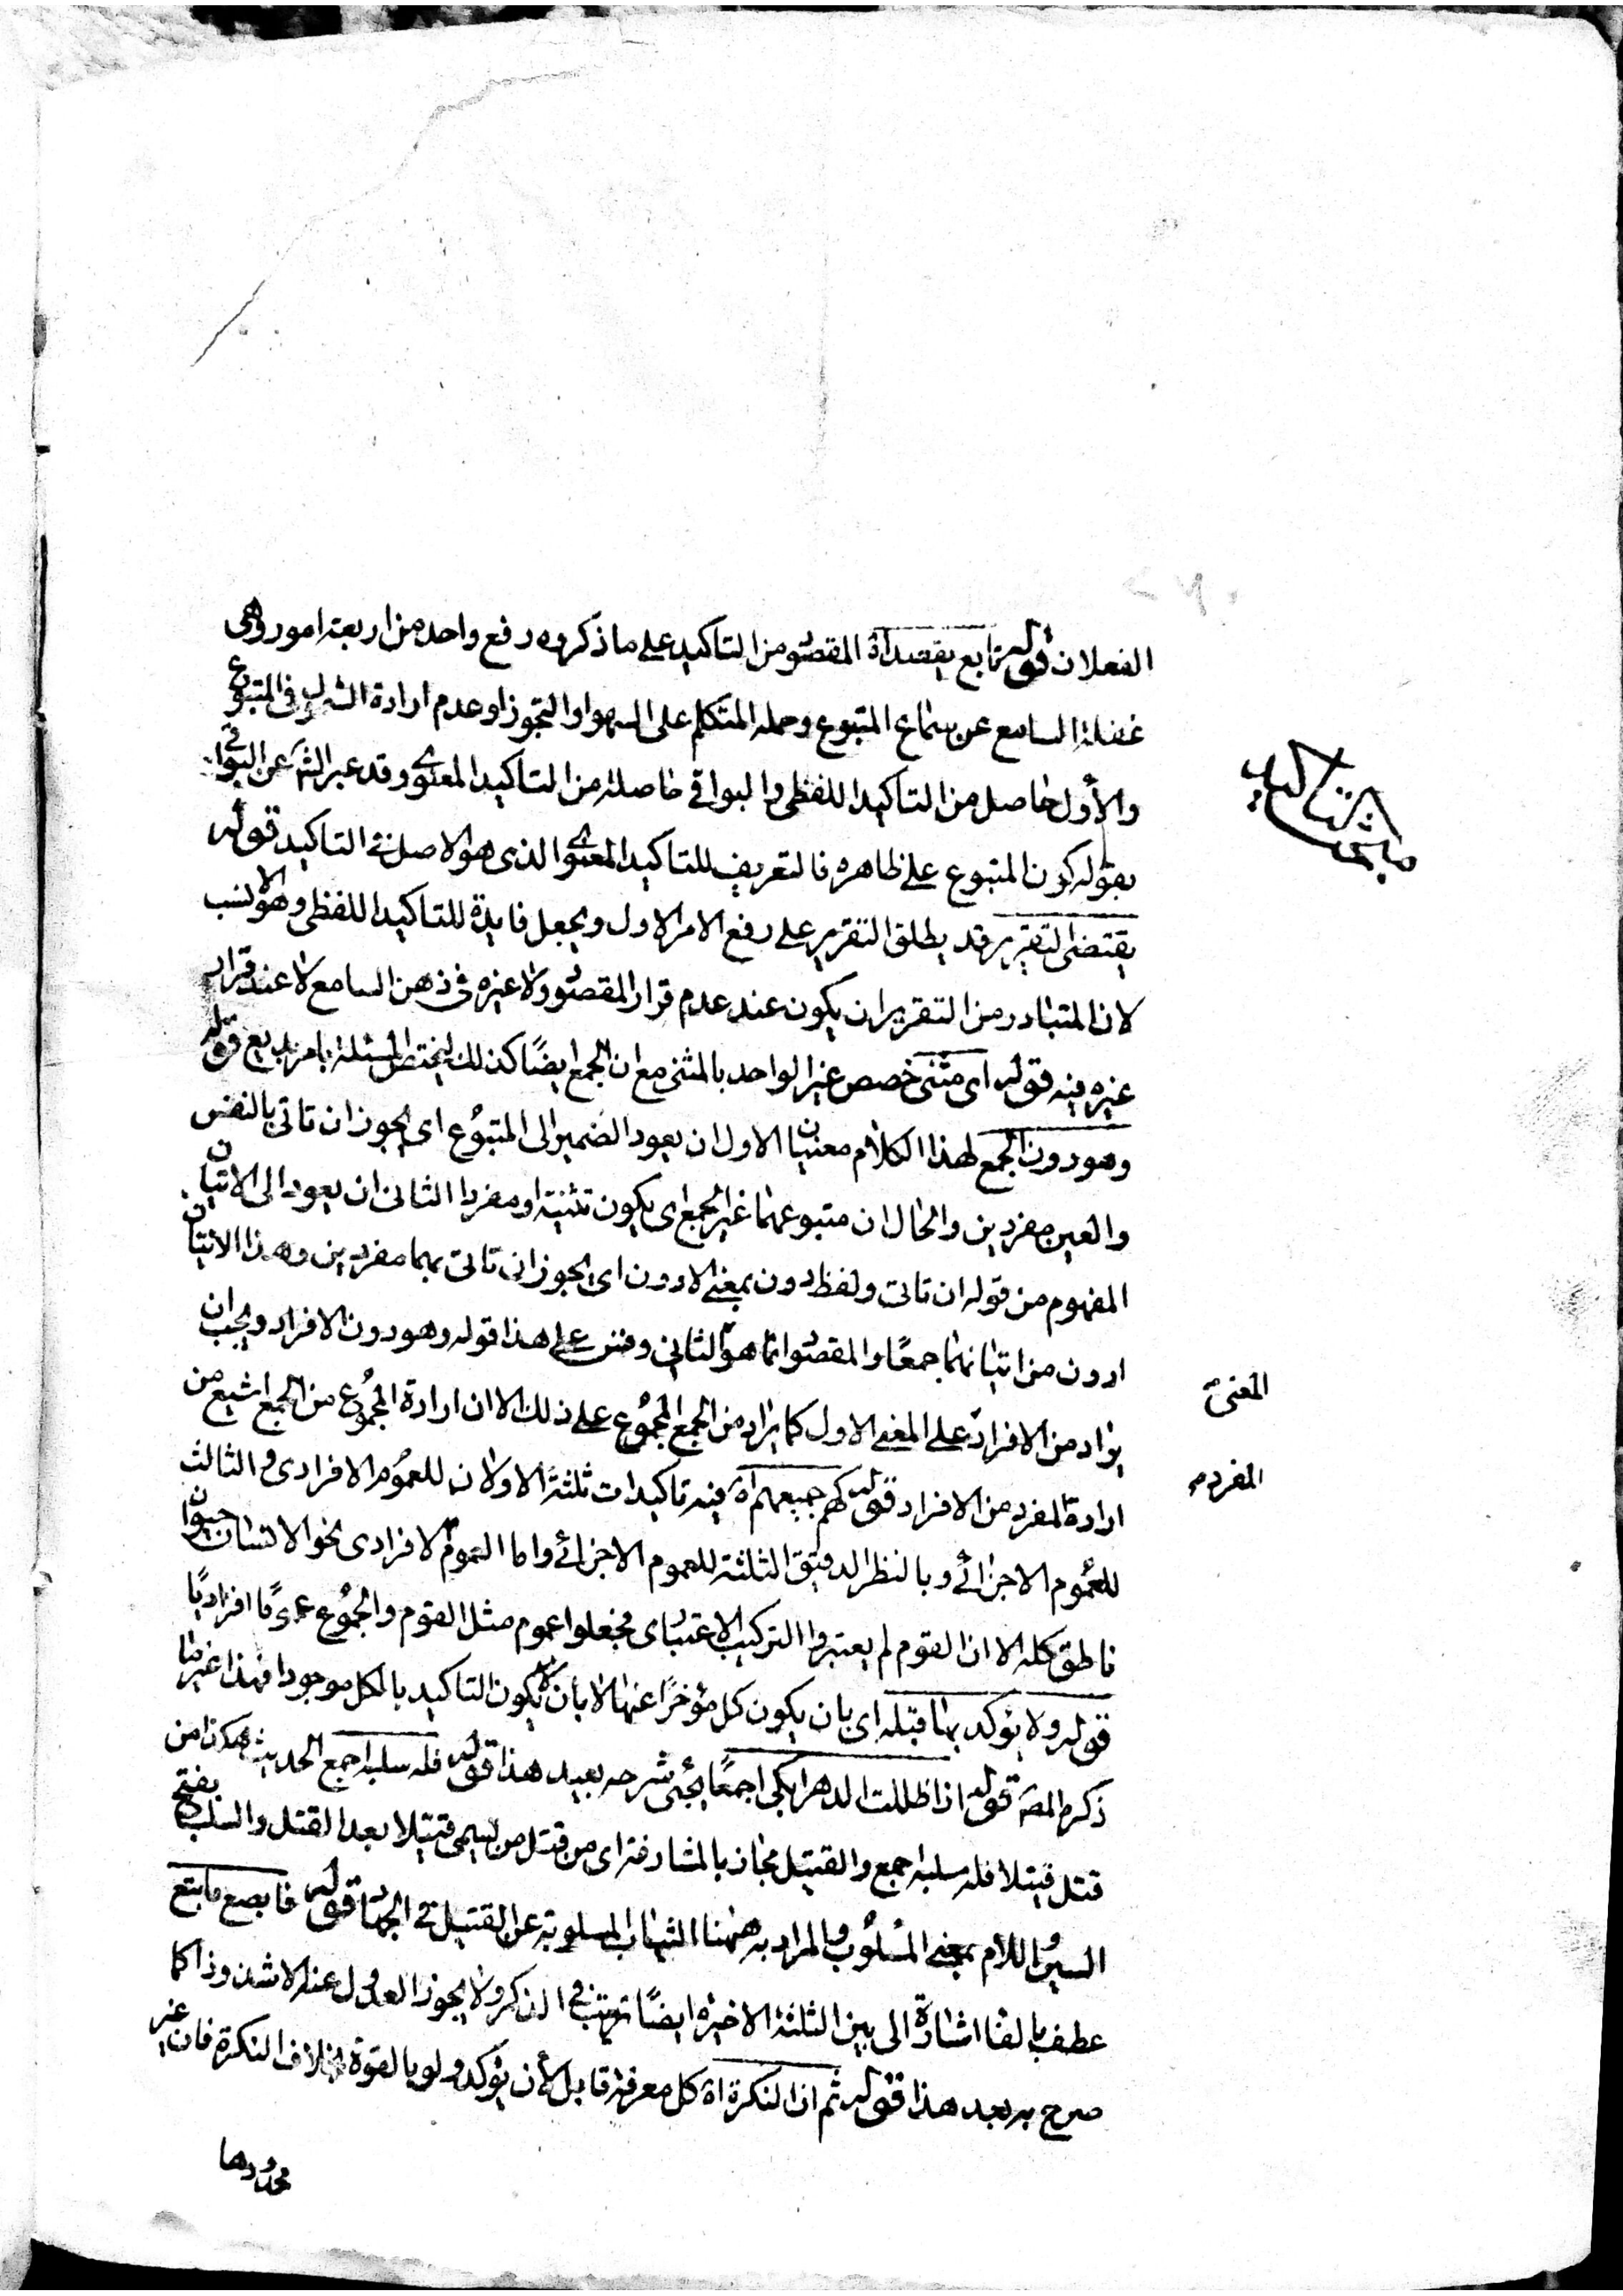 الفعلان قوله تابع يقصد اه المقصود من التاكيد على ما ذكروه رفع واحد من اربعة امور وهى
غفلة السامع عن سماع المتبوع وحمله المتكلم على السهو او التجوز او عدم ارادة الشمول فى المتبوع
والأول حاصل من التاكيد اللفظى والبواقى حاصلة من التاكيد المعنوى وقد عبر الش عن البواقى
بقوله كون المتبوع على ظاهره فالتعريف للتاكيد المعنوى الذى هو الاصل فى التاكيد قوله
يقتضى التقرير قد يطلق التقرير على رفع الامر الاول ويجعل فايدة للتاكيد اللفظى وهو الانسب
لان المتبادر من التقرير ان يكون عند عدم قرار المقصود ولا غيره فى ذهن السامع لا عند قرار
غيره فيه قوله اى مثنى خصص غير الواحد بالمثنى مع ان الجمع ايضًا كذلك ليختص المسئلة بامر بديع قوله
وهو دون الجمع لهذا الكلام معنيان الاول ان يعود الضمير الى المتبوع اى يجوز ان تاتى بالنفس
والعين مفردين والحال ان متبوعهما غير الجمع اى يكون تثنية او مفردا الثانى ان يعود الى الاتيان
المفهوم من قوله ان تاتى ولفظ دون بمعنى الادون اى يجوز ان تاتى بهما مفردين وهذا الاتيان
ادون من اتيانهما جمعًا والمقصود انما هو الثانى وقس على هذا قوله وهو دون الافراد ويجب ان
يراد من الافراد على المعنى الاول كما يراد من الجمع المجموع على ذلك الا ان ارادة المجموع من الجمع اشيع من
المعنى
ارادة المفرد من الافراد قوله كهم جميعهم اه فيه تاكيدات ثلثة الاولان للعموم الافرادى والثالث
المفرد
للعموم الاجزائى وبالنظر الدقيق الثلثة للعموم الاجزائى واما العموم الافرادى نحو الانسان حيوان
ناطق كله الا ان القوم لم يعتبروا التركيب الاعتبارى فجعلوا عموم مثل القوم والمجموع عمومًا افراديًا
قوله ولا يؤكد بها قبله اى بان يكون كل مؤخرًا عنها لا بان لا يكون التاكيد بالكل موجودا فهذا غير ما
ذكره المص قوله اذا ظللت الدهر ابكى اجمعًا يجئ شرحه بعيد هذا قوله فله سلبه اجمع الحديث هكذا من
قتل قتيلا فله سلبه اجمع والقتيل مجاز بالمشارفة اى من قتل من يسمى قتيلا بعد القتل والسلب بفتح
السين واللام بمعنى المسلوب والمراد به ههنا الثياب المسلوبة عن القتيل فى الجهاد قوله فابصع فابتع
عطف بالفا اشارة الى بين الثلثة الاخيرة ايضًا ترتيب فى الذكر ولا يجوز العدول عنه الا شذوذا كما
صرح به بعد هذا قوله ثم ان النكرة اه كل معرفة قابل لأن يؤكد ولو بالقوة بخلاف النكرة فان غير
محدودها
مبحث التاكيد